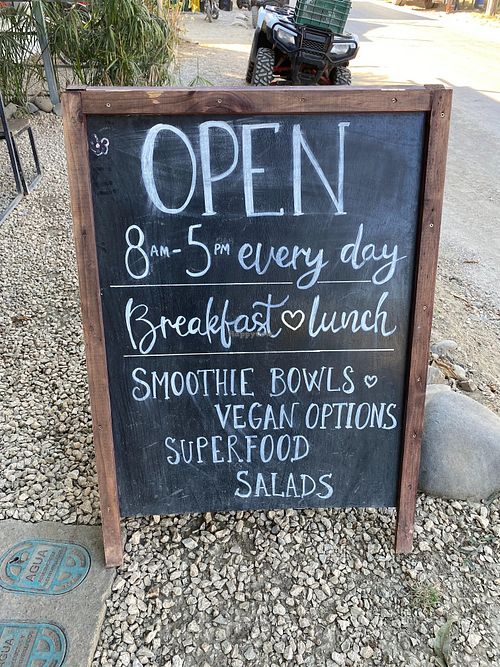 OPEN
8AM-5PM every day
Breakfast ♡ lunch
SMOOTHIE BOWLS ♡
VEGAN OPTIONS
SUPERFOOD
SALADS
AGUA
AGUA